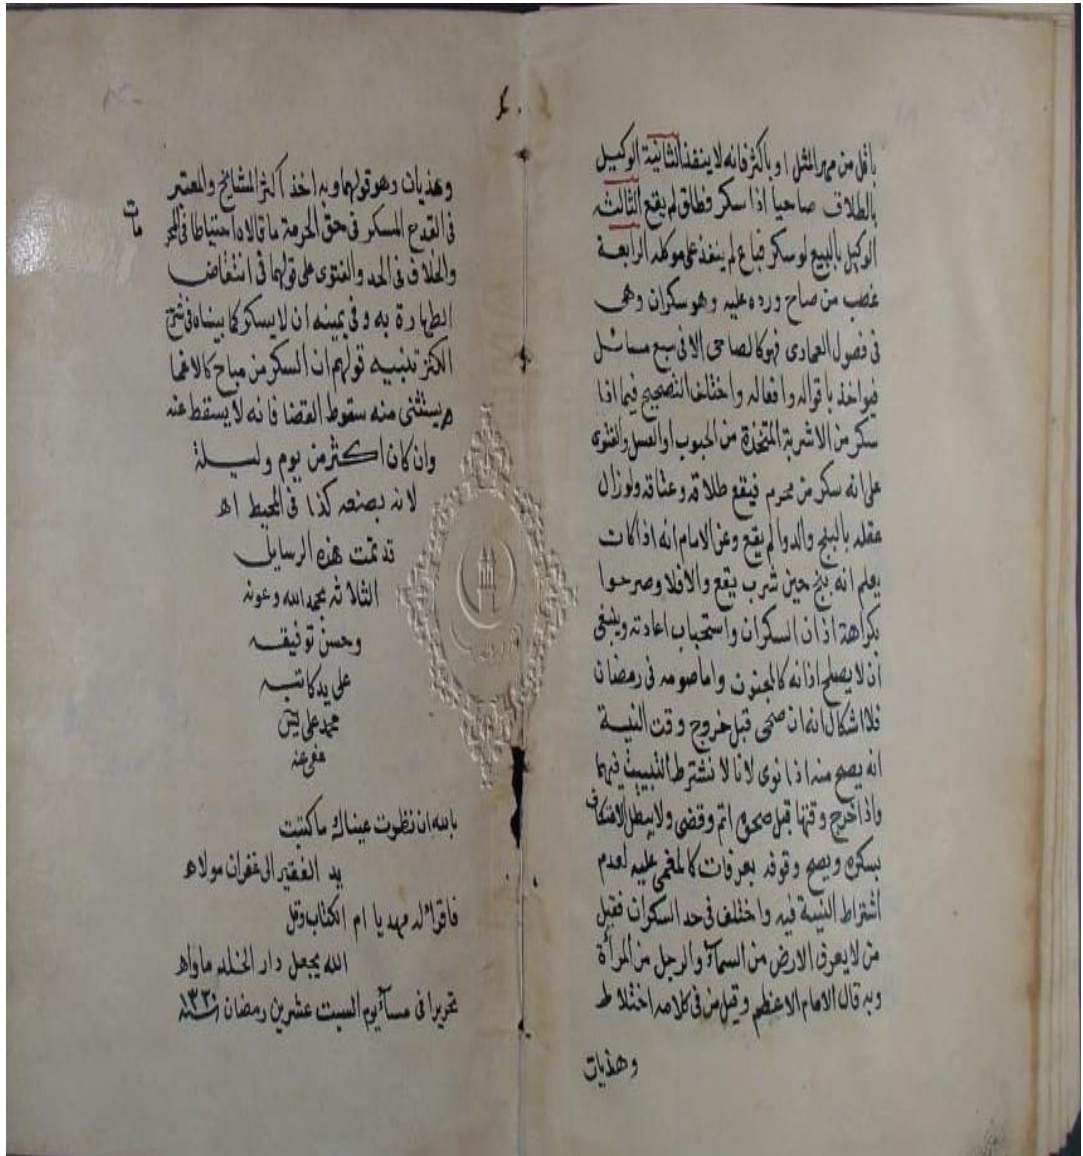 باقل من مهر المثل او باكثر فانه لا ينفذ الثانية الوكيل
بالطلاق صاحيا اذا سكر فطلق لم يقع الثالثه
الوكيل بالبيع لو سكر فباع لم ينفذ على موكله الرابعة
غصب من صاح ورده عليه وهو سكران وهى
فى فصول العمادى فهو كالصاحى الا فى سبع مسائل
فيواخذ باقواله وافعاله واختلف التصحيح فيما اذا
سكر من الاشربة المتخذة من الحبوب او العسل والفتوى
على انه سكر من محرم فيقع طلاقه وعتاقه ولو زال
عقله بالبنج والدوا لم يقع وعن الامام انه اذا كان
يعلم انه بنج حين شرب يقع والا فلا وصرحوا
بكراهة اذان السكران واستحباب اعادته وينبغى
ان لا يصح اذانه كالمجنون واما صومه فى رمضان
فلا اشكال انه ان صحى قبل خروج وقت النية
انه يصح منه اذا نوى لانا لا نشترط التبييت فيها
واذا خرج وقتها قبل صحوه اثم وقضى ولا يبطل الاعتكاف
بسكره ويصح وقوفه بعرفات كالمغمى عليه لعدم
اشتراط النية فيه واختلف فى حد السكران فقيل
من لا يعرف الارض من السمآء والرجل من المرأة
وبه قال الامام الاعظم وقيل من فى كلامه اختلاط
وهذيان
وهذيان وهو قولهما وبه اخذ اكثر المشايخ والمعتبر
فى القدح المسكر فى حق الحرمة ما قالاه احتياطا فى
والخلاف فى الحد والفتوى على قولهما فى انتقاض
الطهارة به وفى يمينه ان لا يسكر كما بيناه فى شرح
الكنز تنبيه قولهم ان السكر من مباح كالاغما
يستثنى منه سقوط القضا فانه لا يسقط عنه
وان كان اكثر من يوم وليلة
لانه بصنعه كذا فى المحيط اه
قد تمت هذه الرسايل
الثلاثه بحمد الله وعونه
وحسن توفيقه
على يد كاتبه
محمد على
عفى عنه
بالله ان نظرت عيناك ما كتبت
يد الفقير الى غفران مولاه
فاقرا له مهديا ام الكتاب وقل
الله يجعل دار الخلد ماواه
تحريرا فى مسآء يوم السبت عشرين رمضان سنة ١٣٢٠